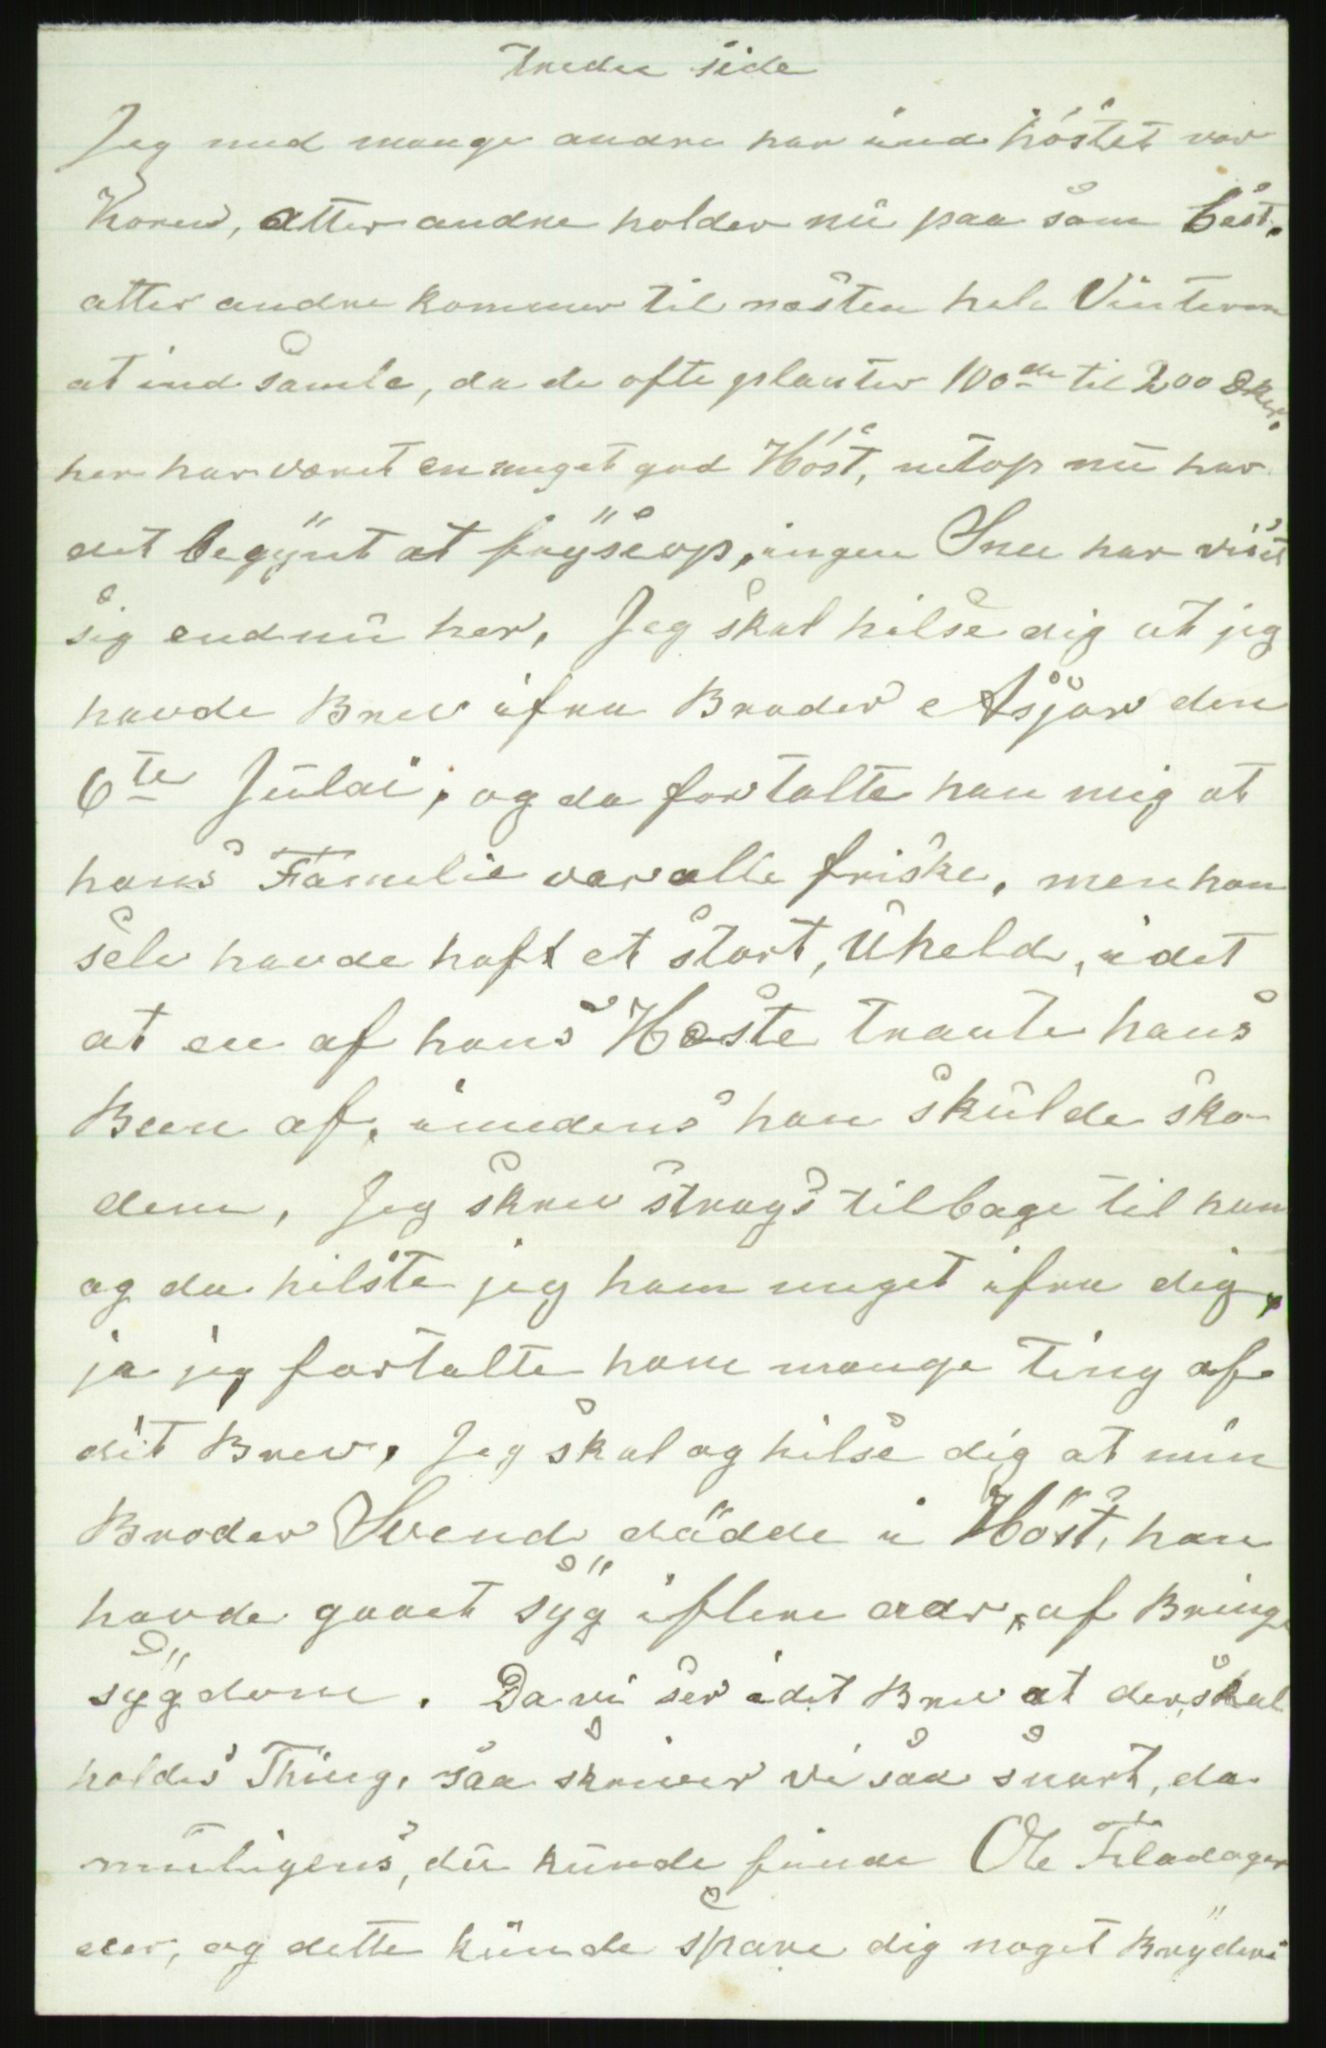 tredie side
Jeg med mange andre har ind höstet vor
Koren, atter andre holder nu paa som bäst.
atter andre kommer til næsten hele Vinteren
at ind samle, da de ofte planter 100de til 200 Eker.
her har været en meget god Höst, netop nu har
det begÿnt at frÿse op, ingen Snee har vist
sig endnu her, Jeg skal hilse dig at jeg
havde Brev ifra Broder Asjør den
6te Julai, og da fortalte han mig at
hans Familie var alle friske, men han
selv havde haft et stort, Uheld, idet
at en af hans Heste traate hans
Been af, imedens han skulde sko
dem, Jeg skrev strags tilbage til ham
og da hilste jeg ham meget ifra dig,
ja jeg fortalte ham mange ting af
dit Brev, Jeg skal og hilse dig at min
Broder Svend dödde i Höst, han
havde gaaet sÿg i flere aar, af Bringe
sÿgdom. Da vi ser i dit Brev at der skal
holdes Thing, saa skriver vi saa snart, da
muligens, du kunde finde Ole Fladager
der, og dette kunde spare dig noget Brÿderi